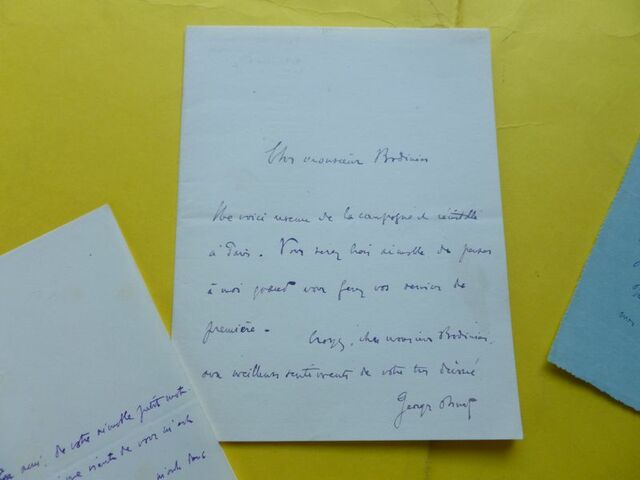 Cher monsieur Bodinier
Me voici revenu de la campagne et réinstallé
à Paris. Vous serez bien aimable de penser
à moi quand vous ferez vos services de
première. Croyez, cher monsieur Bodinier,
aux meilleurs sentiments de votre très dévoué
Georges Ohnet
ami. de votre aimable petit mot
de vous